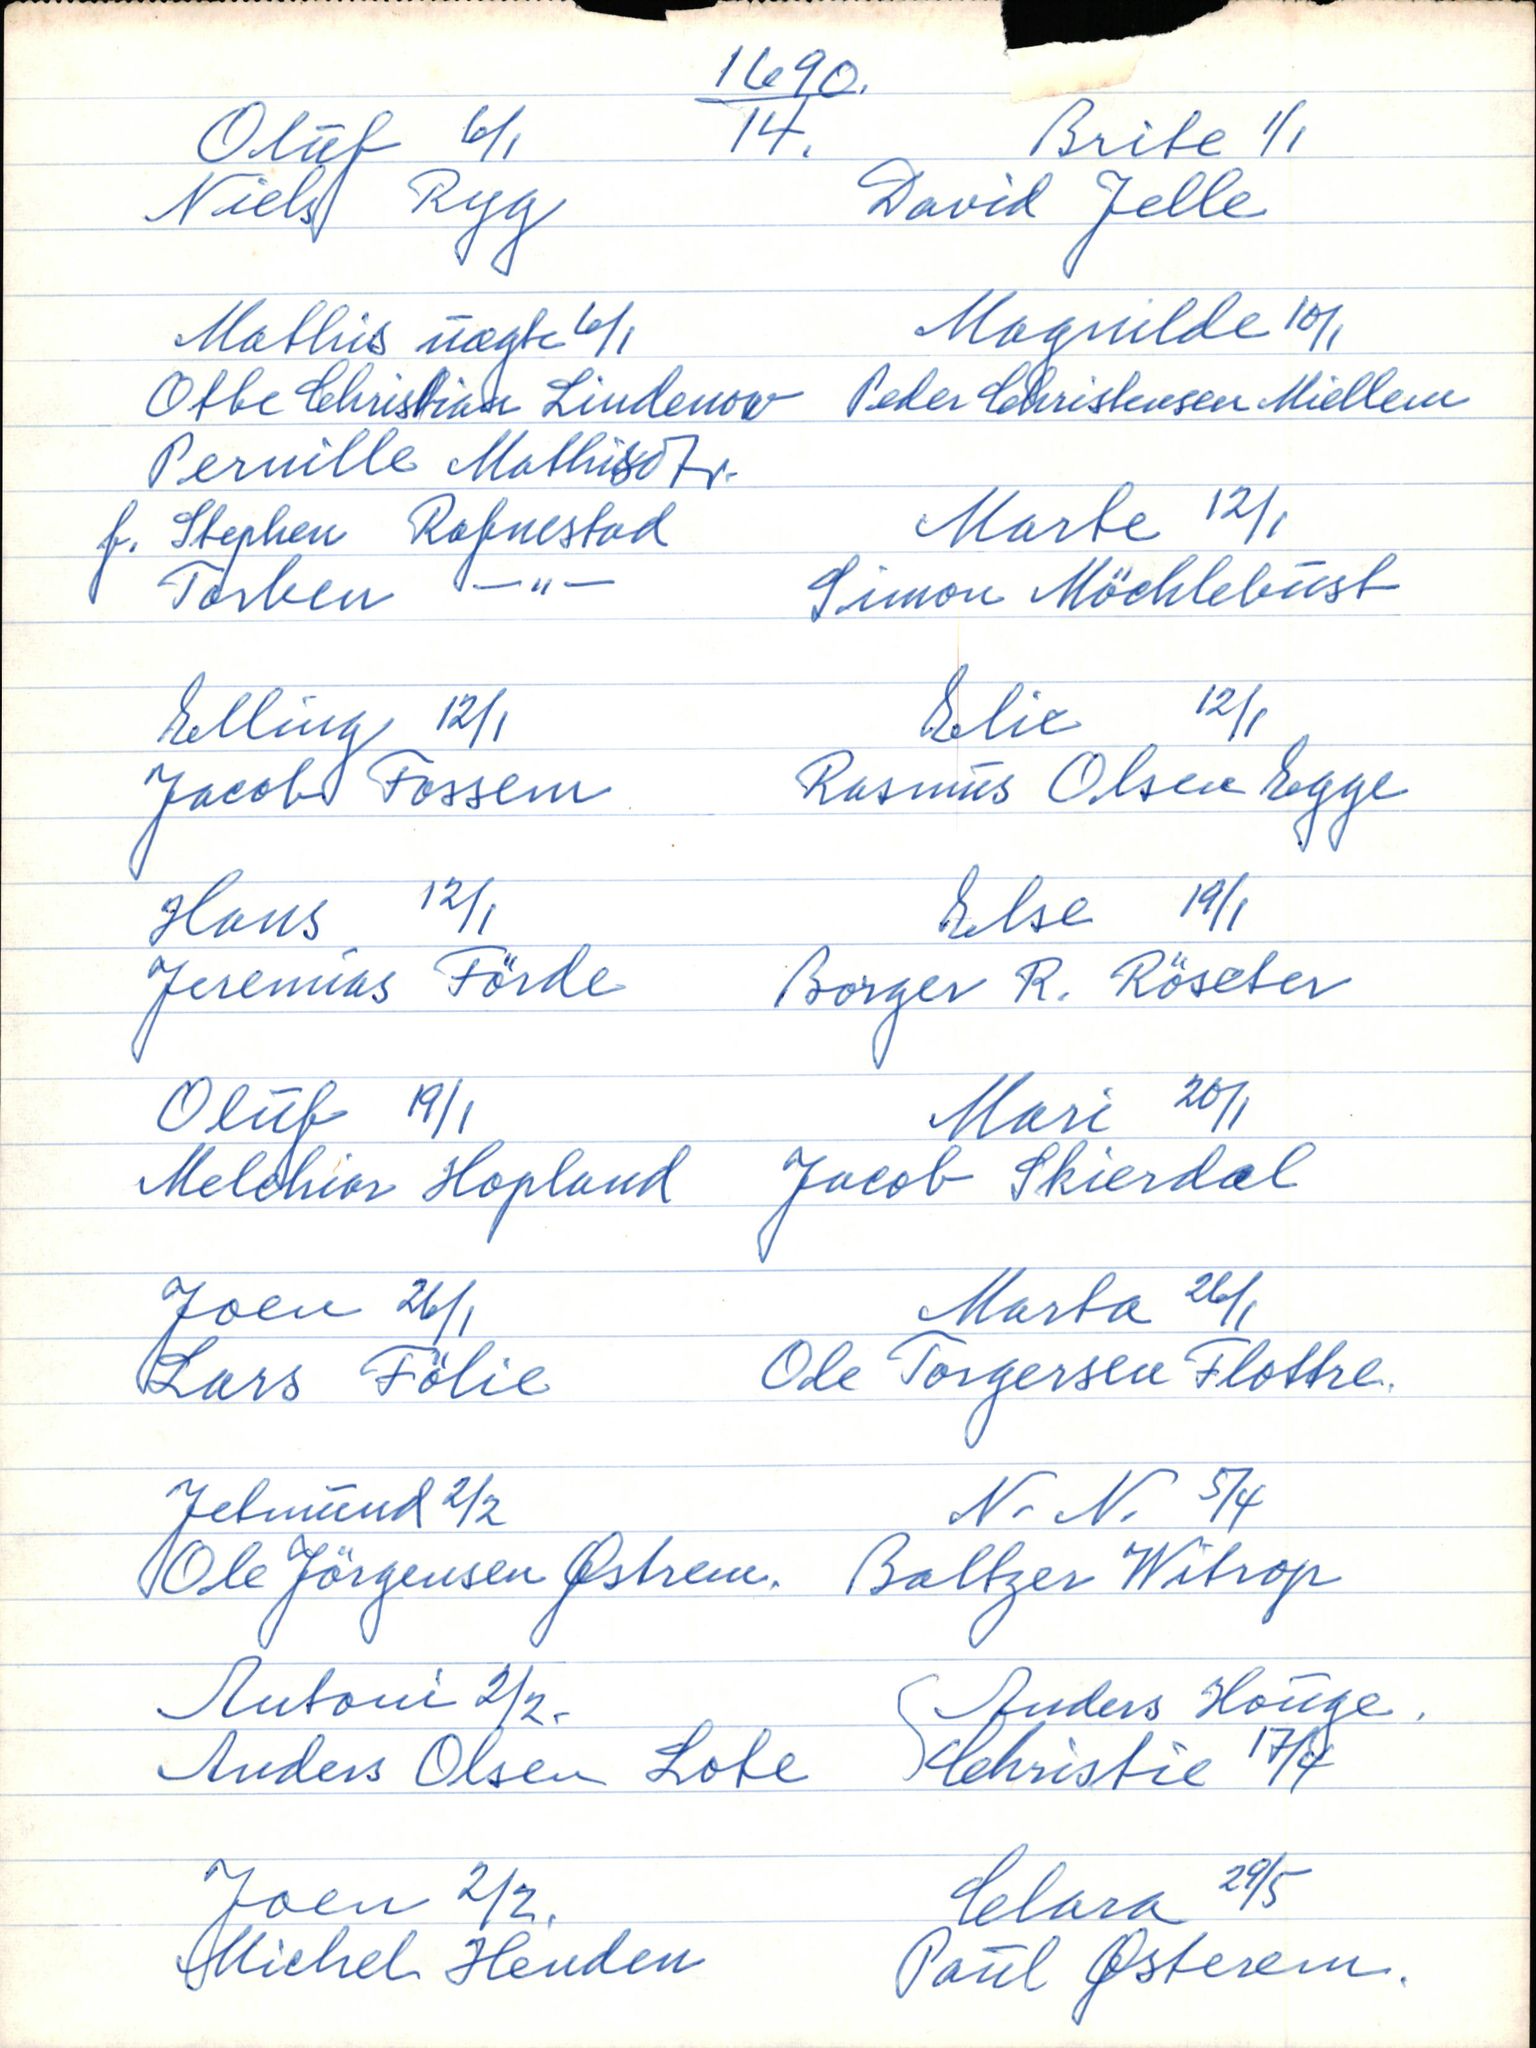 1690.
14.
Olüf 6/1
Niels Rÿg
Mathis üægte 6/1
Otte Christian Lindenow
Pernille Mathisdtr.
f. Stephen Rafnestad
Torben —"—
Elling 12/1
Jacob Fossem
Hans 12/1
Jeremias Förde
Olüf 19/1
Melchior Hopland
Joen 26/1
Lars Fölie
Jetmünd 2/2
Ole Jörgensen Østrem.
Antoni 2/2.
Anders Olsen Lote
Joen 2/2.
Michel Henden
Brite 1/1
David Jelle
Magnilde 10/1
Peder Christensen Miellem
Marte 12/1
Simon Möchlebüst
Elie 12/1
Rasmüs Olsen Egge
Else 19/1
Borger R. Röseter
Mari 20/1
Jacob Skierdal
Marta 26/1
Ole Torgersen Flottre.
N. N. 5/4
Baltzer Witrop
Anders Houge.
Christie 17/4
Clara 29/5
Paül Østerem.